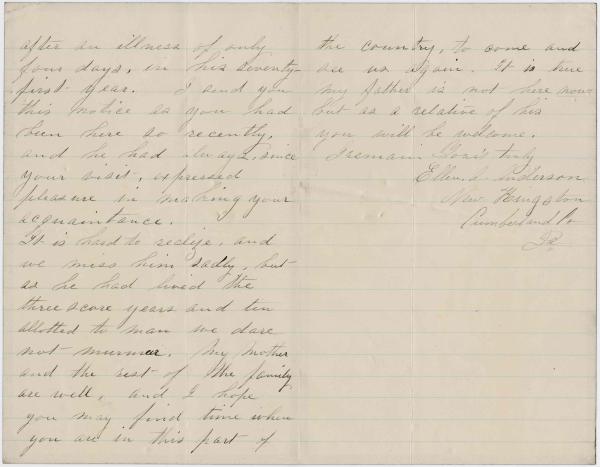 after an illness of only
four days, in his seventy-
first year. I send you
this notice as you had
been here so recently,
and he had always, since
your visit, expressed
pleasure in making your
acquaintance.
It is hard to realize, and
we miss him sadly, but
as he had lived the
three score years and ten
allotted to man we dare
not murmur. My Mother
and the rest of the family
are well, and I hope
you may find time when
you are in this part of
the country, to come and
see us again. It is true
my father is not here now
but as a relative of his
you will be welcome.
I remain Yours truly
Ellen S. Anderson
New Kingston
Cumberland Co
Pa